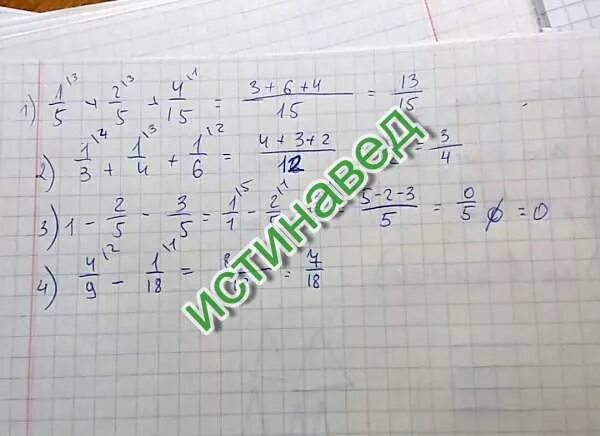 1) 1/5 \3 + 2/5 \3 + 4/15 \1 = (3+6+4)/15 = 13/15
2) 1/3 \4 + 1/4 \3 + 1/6 \2 = (4+3+2)/12 = 3/4
3) 1 - 2/5 - 3/5 = 1/1 \5 - 2/5 \1 = (5-2-3)/5 = 0/5 = 0
4) 4/9 \2 - 1/18 \1 = = 7/18
истинавед